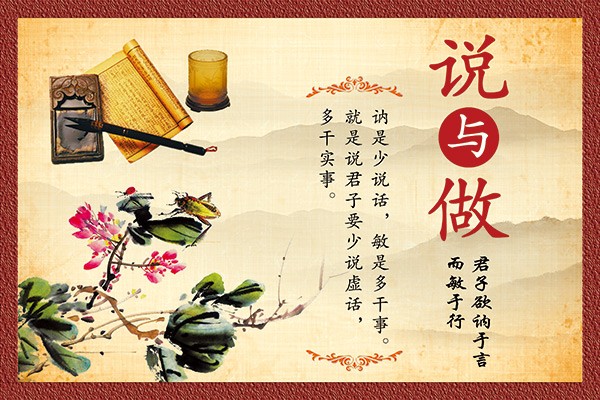 说
与
做
君子欲讷于言
而敏于行
讷是少说话，敏是多干事。
就是说君子要少说虚话，
多干实事。